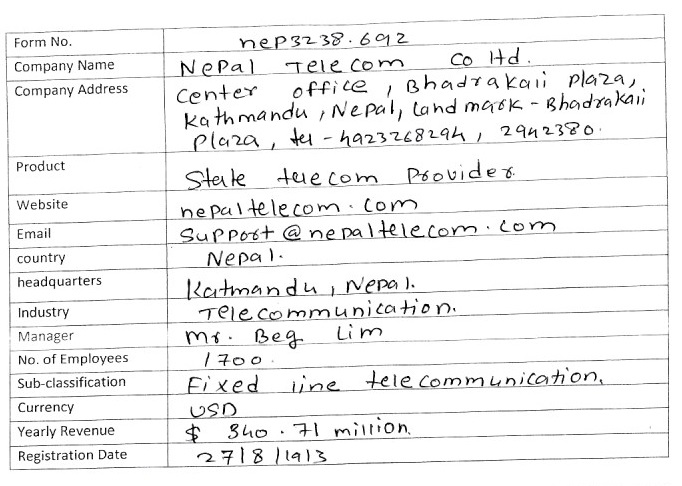 Form No. nep3238.692
Company Name Nepal Telecom Co ltd.
Company Address Center office, Bhadrakali Plaza,
Kathmandu, Nepal, Landmark - Bhadrakali
Plaza, tel - 4923268294, 2942380.
Product State telecom Provider.
Website nepaltelecom.com
Email support@nepaltelecom.com
country Nepal.
headquarters Katmandu, Nepal.
Industry Telecommunication.
Manager Mr. Beg Lim
No. of Employees 1700.
Sub-classification Fixed line telecommunication.
Currency USD
Yearly Revenue $ 340.71 million.
Registration Date 27/8/1913